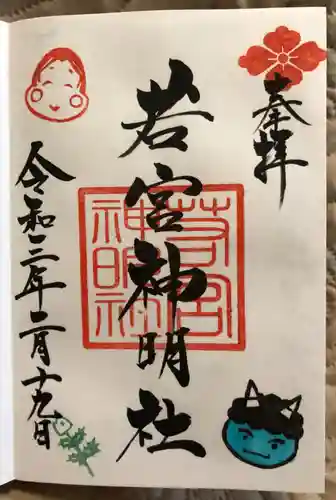 奉拝
若宮神明社
若宮
神明社
令和三年二月十九日